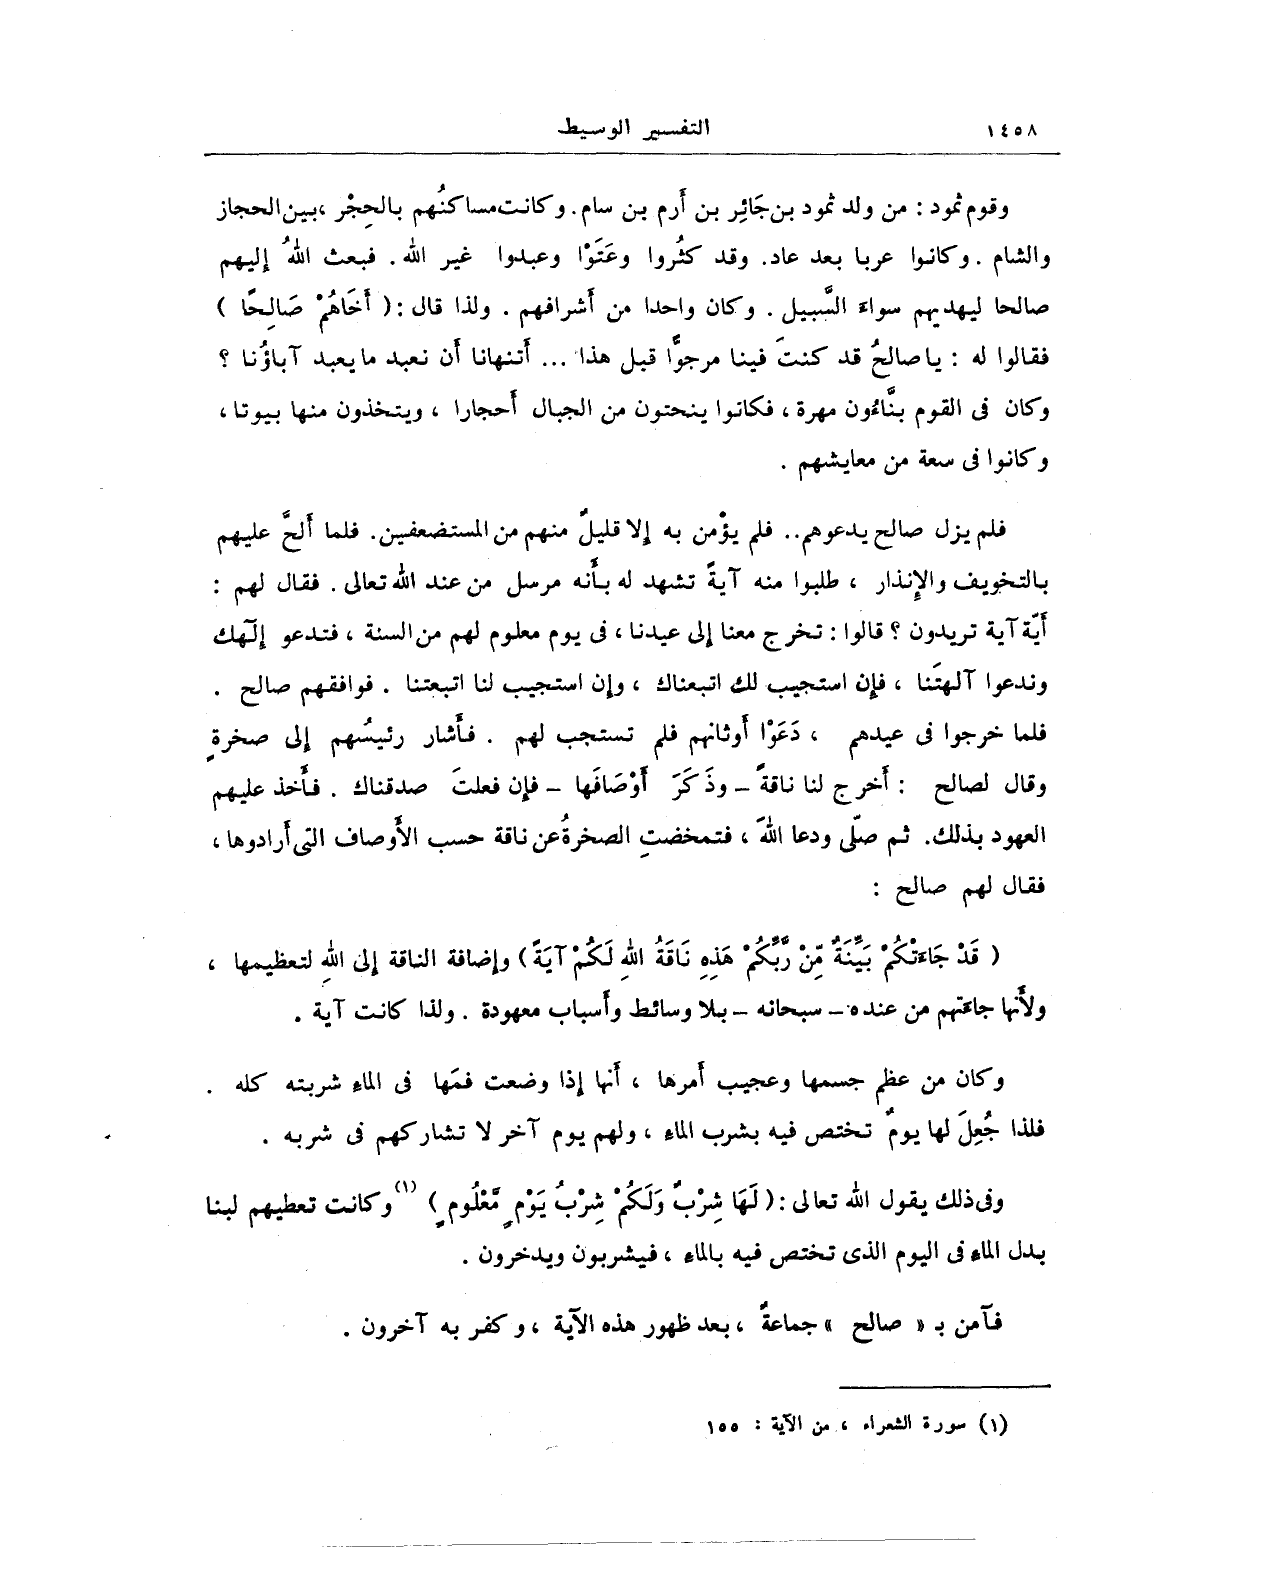 ١٤٥٨ التفسير الوسيط
وقوم ثمود : من ولد ثمود بن جَائِر بن أَرم بن سام. وكانت مساكنُهم بالحِجْر ، بين الحجاز
والشام . وكانوا عربا بعد عاد. وقد كثُروا وعَتَوْا وعبدوا غير الله . فبعث اللهُ إليهم
صالحا ليهديهم سواءَ السَّبيل . وكان واحدا من أَشرافهم . ولذا قال : ( أَخَاهُمْ صَالِحًا )
فقالوا له : يا صالحُ قد كنتَ فينا مرجوًّا قبل هذا ... أَتنهانا أَن نعبد ما يعبد آباؤُنا ؟
وكان فى القوم بنَّاءُون مهرة ، فكانوا ينحتون من الجبال أَحجارا ، ويتخذون منها بيوتا ،
وكانوا فى سعة من معايشهم .
فلم يزل صالح يدعوهم .. فلم يؤْمن به إلا قليلٌ منهم من المستضعفين. فلما أَلحَّ عليهم
بالتخويف والإنذار ، طلبوا منه آيةً تشهد له بأَنه مرسل من عند الله تعالى . فقال لهم :
أَيّة آية تريدون ؟ قالوا : تخرج معنا إلى عيدنا ، فى يوم معلوم لهم من السنة ، فتدعو إلَهك
وندعوا آلهتَنا ، فإن استجيب لك اتبعناك ، وإن استجيب لنا اتبعتنا . فوافقهم صالح .
فلما خرجوا فى عيدهم ، دَعَوْا أَوثانهم فلم تستجب لهم . فأَشار رئيسُهم إلى صخرةٍ
وقال لصالح : أَخرج لنا ناقةً – وذَكَرَ أَوْصَافَها – فإن فعلتَ صدقناك . فأَخذ عليهم
العهود بذلك. ثم صلَّى ودعا اللهَ ، فتمخضتِ الصخرةُ عن ناقة حسب الأَوصاف التى أَرادوها ،
فقال لهم صالح :
( قَدْ جَاءَتْكُمْ بَيِّنَةٌ مِّنْ رَّبِّكُمْ هَذِهِ نَاقَةُ اللهِ لَكُمْ آيَةً ) وإضافة الناقة إلى اللهِ لتعظيمها ،
ولأَنها جاءَتهم من عنده – سبحانه – بلا وسائط وأَسباب معهودة . ولذا كانت آية .
وكان من عظم جسمها وعجيب أَمرها ، أَنها إذا وضعت فمَها فى الماءِ شربته كله .
فلذا جُعِلَ لها يومٌ تختص فيه بشرب الماءِ ، ولهم يوم آخر لا تشاركهم فى شربه .
وفى ذلك يقول الله تعالى : ( لَهَا شِرْبٌ وَلَكُمْ شِرْبُ يَوْمٍ مَّعْلُومٍ ) (١) وكانت تعطيهم لبنا
بدل الماءِ فى اليوم الذى تختص فيه بالماءِ ، فيشربون ويدخرون .
فآمن بـ « صالح » جماعةٌ ، بعد ظهور هذه الآية ، وكفر به آخرون .
(١) سورة الشعراء ، من الآية : ١٥٥